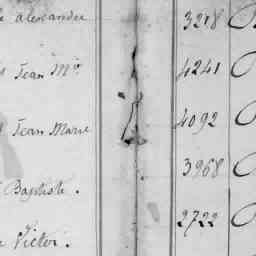 alexandre 3218
Jean Mie 4241
Jean Marie 4092
Baptiste. 3968
Victor. 2722